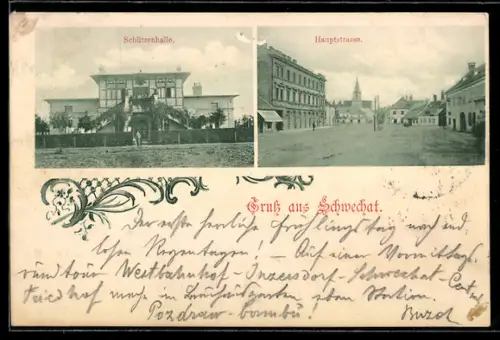 Schützenhalle.
Hauptstrasse.
Gruß aus Schwechat.
Der erste herrliche Frühlingstag nach end-
losen Regentagen. - Auf einer Vormittags-
rundtour Westbahnhof - Inzersdorf - Schwechat - Central
Friedhof mache im Bräuhausgarten eben Station.
Pozdraw - bombu!